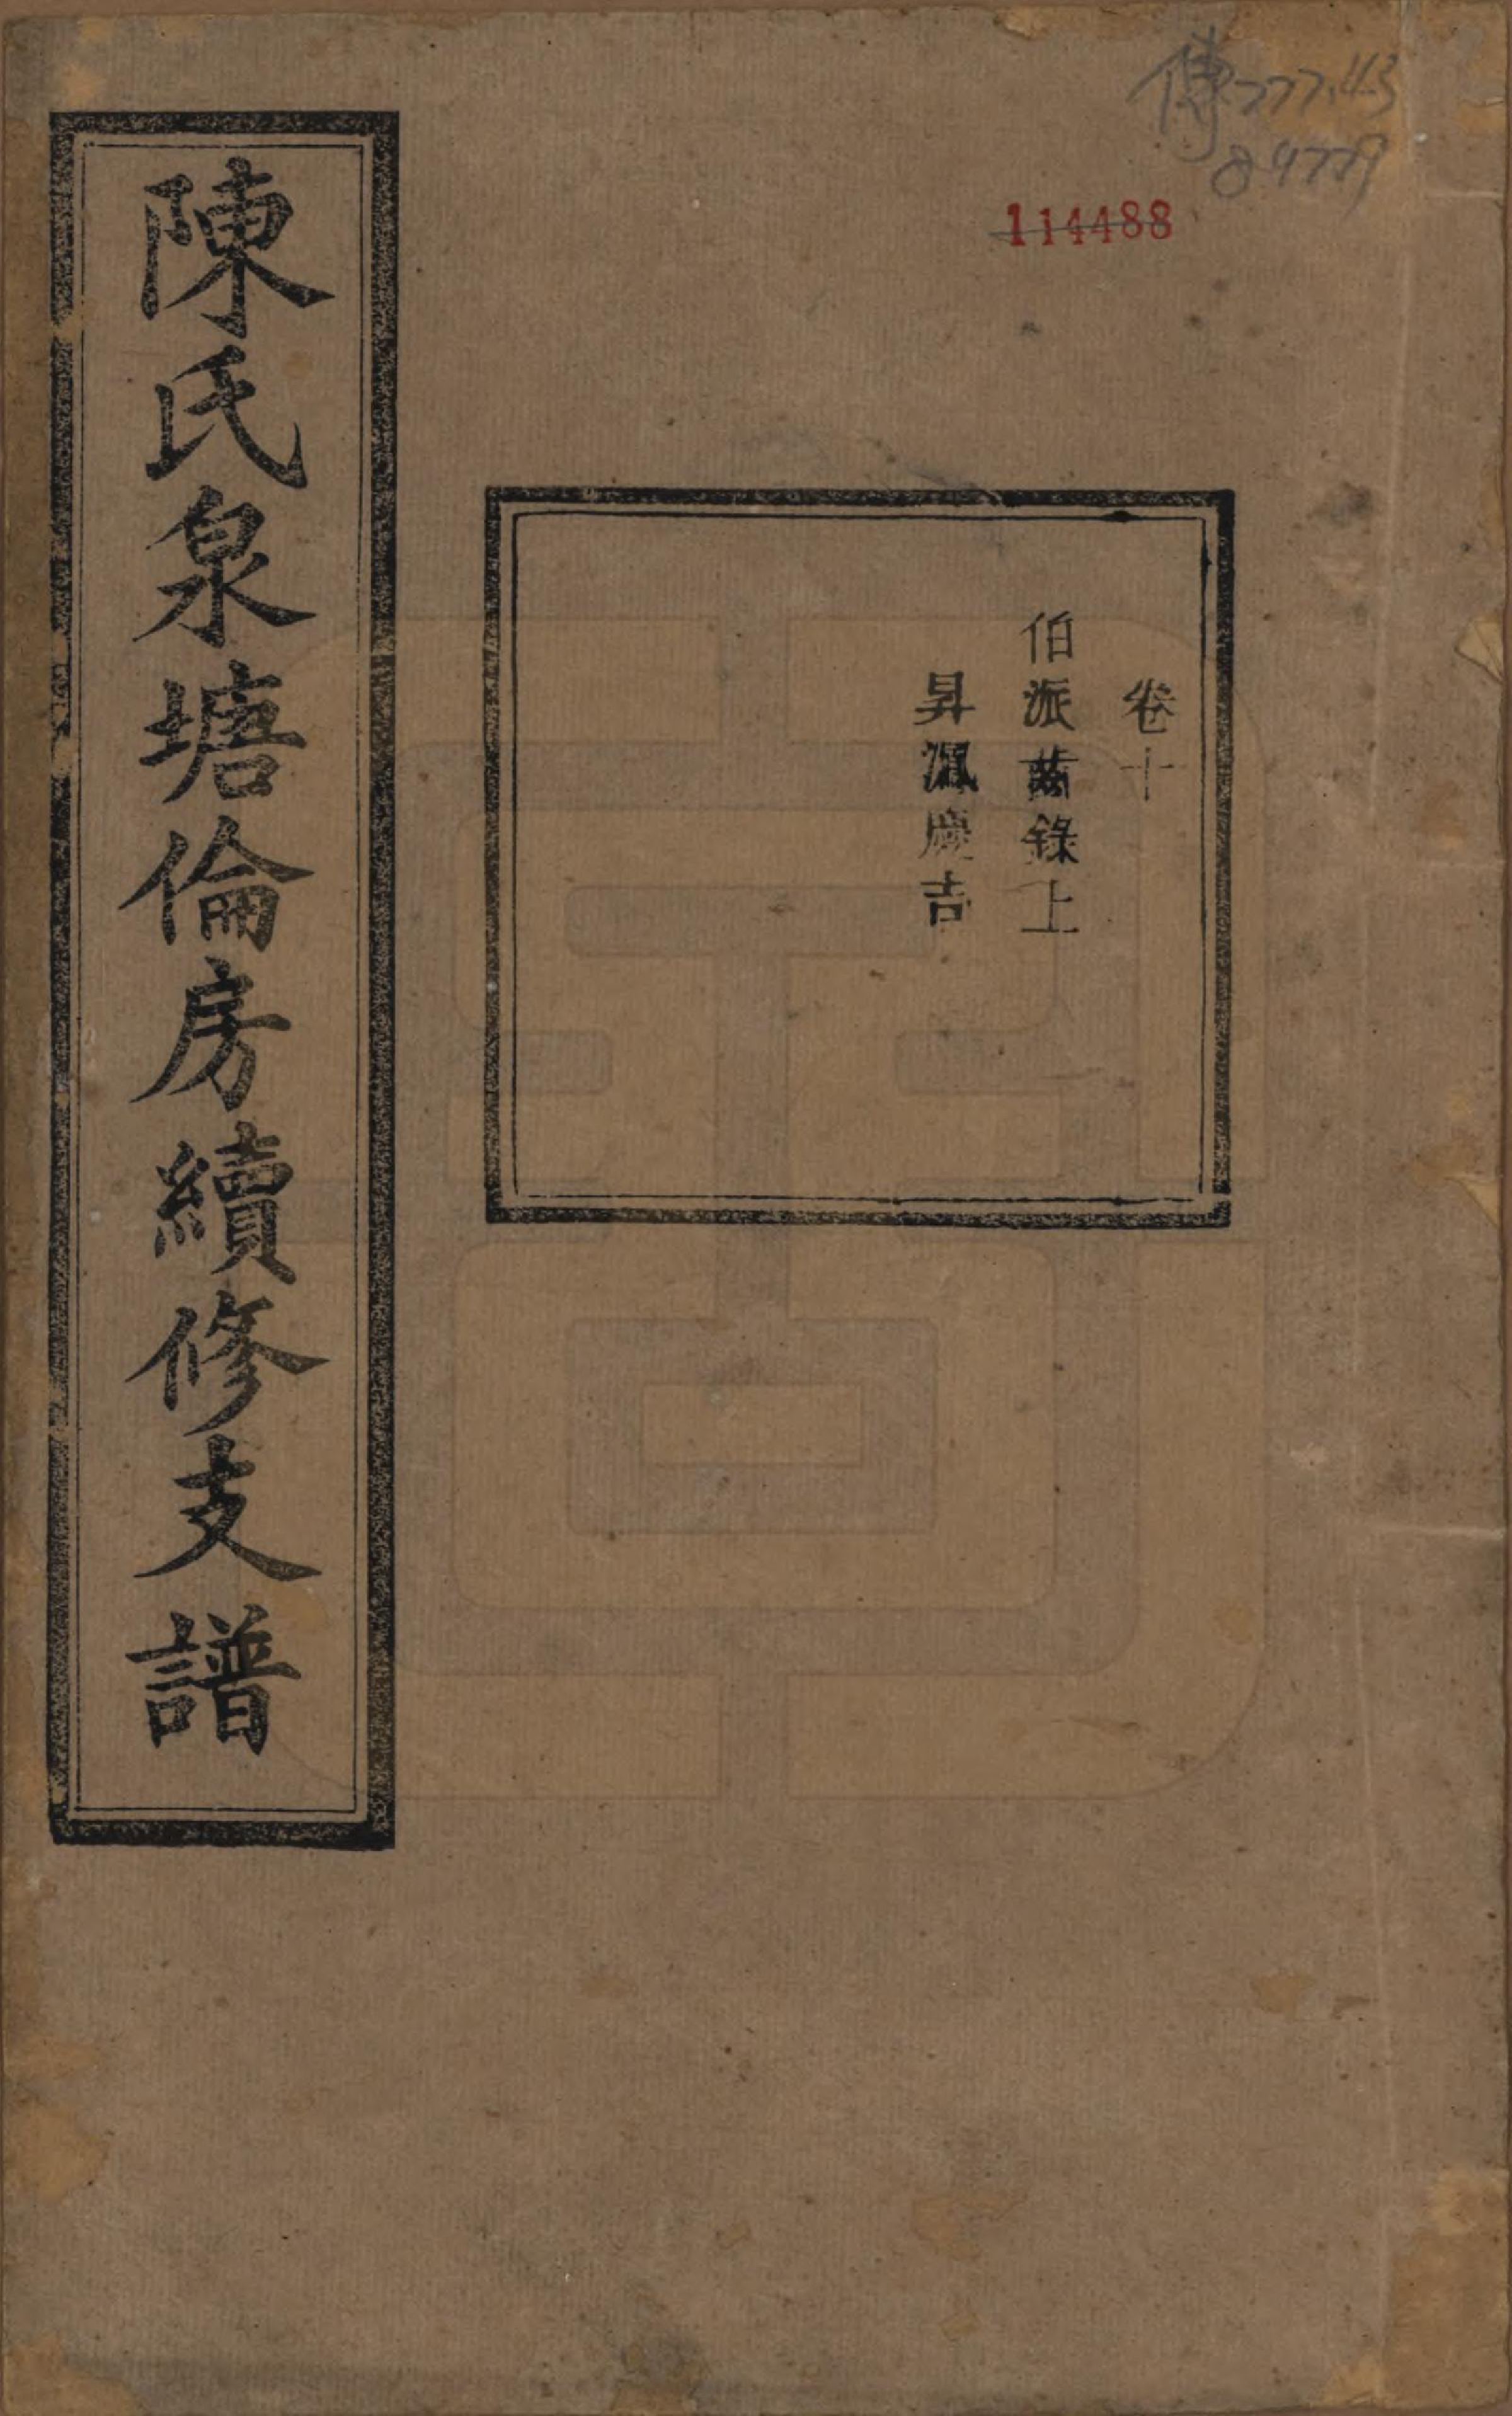 傳777.43
84779
114488
卷十
伯派齒錄上
昇沨慶吉
陳氏泉塘倫房續修支譜